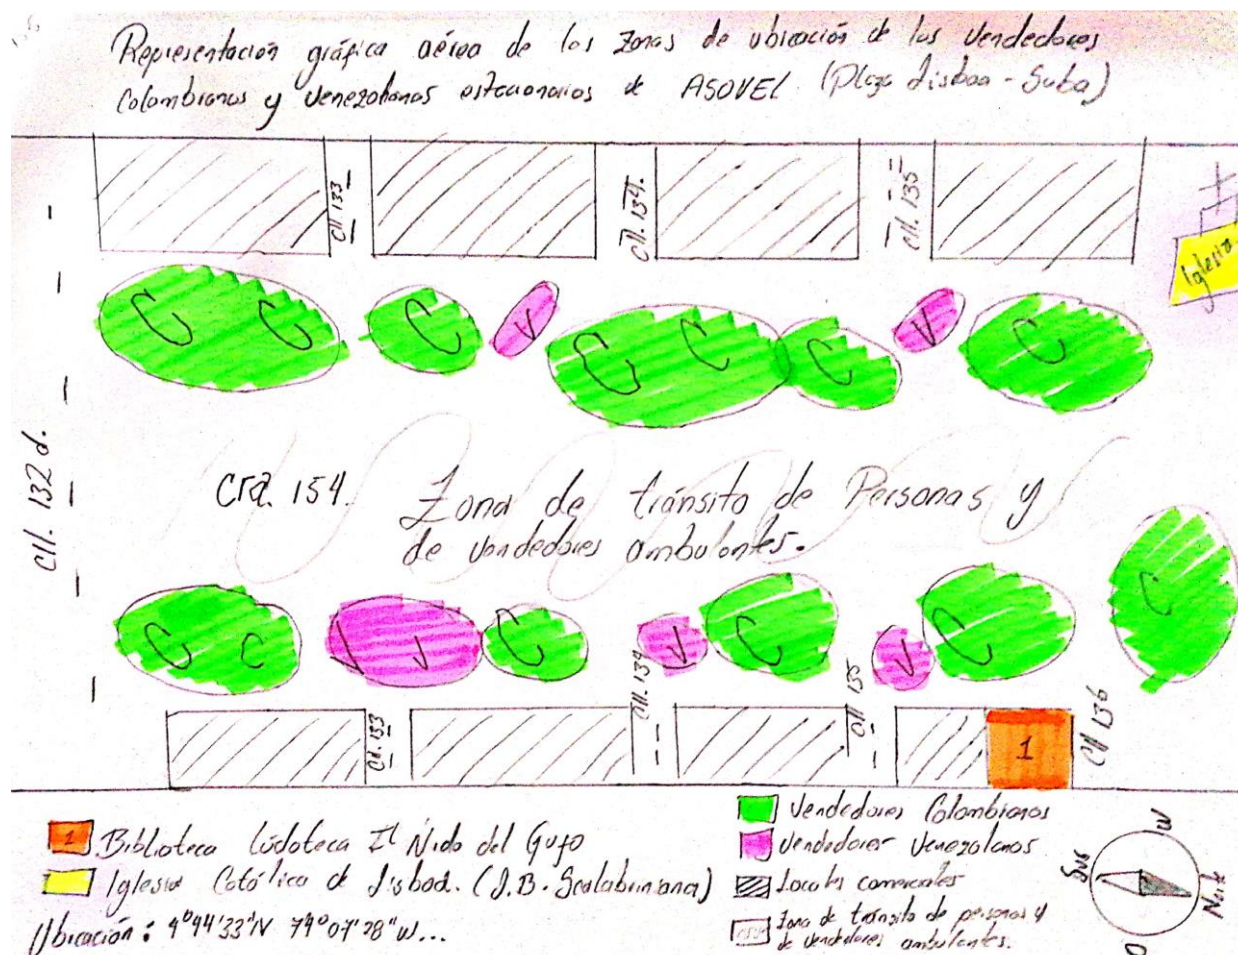 Representación gráfica aérea de los zonas de ubicación de los vendedores
Colombianos y Venezolanos estacionarios de ASOVEL (Plaza Lisboa - Suba)
Cll. 133
Cll. 134.
Cll. 135
Iglesia
C C
C
V
C C
C
V
C
Cll. 132 d.
Cra. 154. Zona de tránsito de Personas y
de vendedores ambulantes.
C
C C
V V
C
V
C
V
C
Cll. 133
Cll. 134
Cll 135
1
Cll 136
1 Biblioteca Ludoteca Il Nido del Gufo
Iglesia Católica de Lisboa. (J.B. Scalabriniana)
Ubicación: 4°44'33"N 74°07'28"W...
Vendedores Colombianos
Vendedores Venezolanos
Locales comerciales
Zona de tránsito de personas y
de vendedores ambulantes.
W
Sur
Norte
O